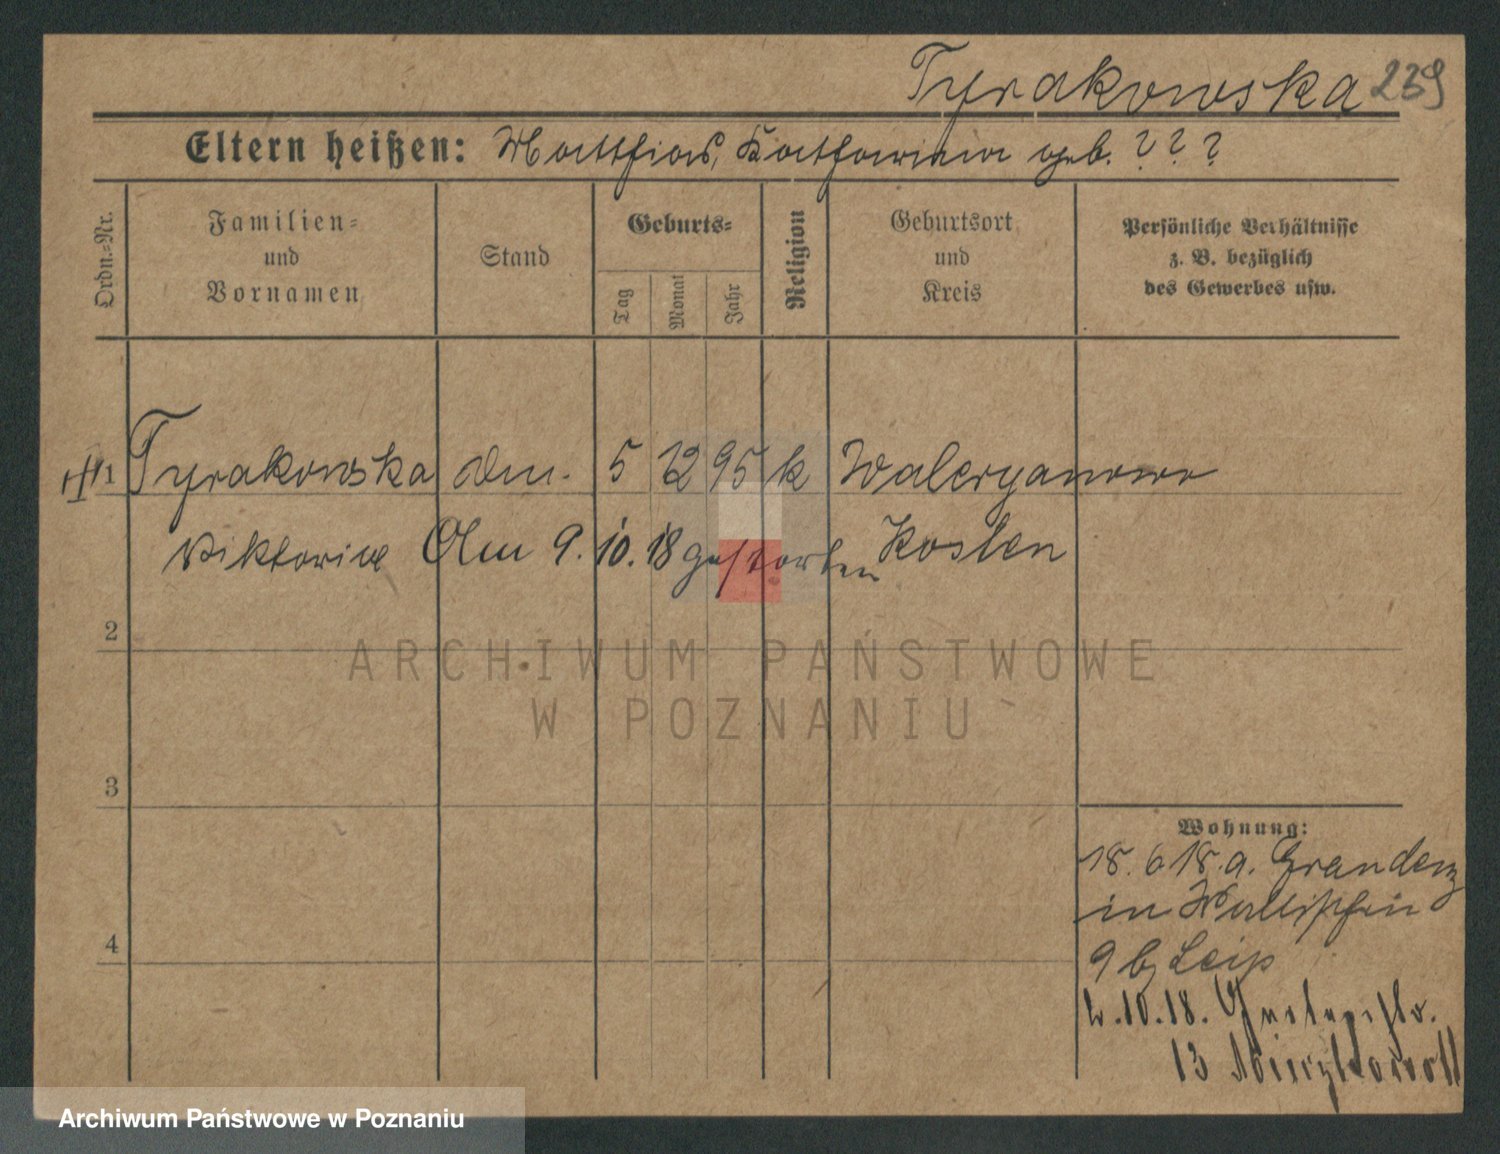 Tyrakowska 239
Eltern heißen: Matthias, Katharina geb. ? ? ?
Ordn.-Nr.
Familien-
und
Vornamen
Stand
Geburts-
Tag
Monat
Jahr
Religion
Geburtsort
und
Kreis
Persönliche Verhältnisse
z. B. bezüglich
des Gewerbes usw.
1 Tyrakowska 5 12 95 k Waleryanowo
Viktoria Am 9. 10. 18 gestorben Kosten
2
3
4
ARCHIWUM PAŃSTWOWE
W POZNANIU
Wohnung:
18. 6 18. a. Graudenz
in Wallischei
9 b Leip
2. 10. 18.
13
Archiwum Państwowe w Poznaniu